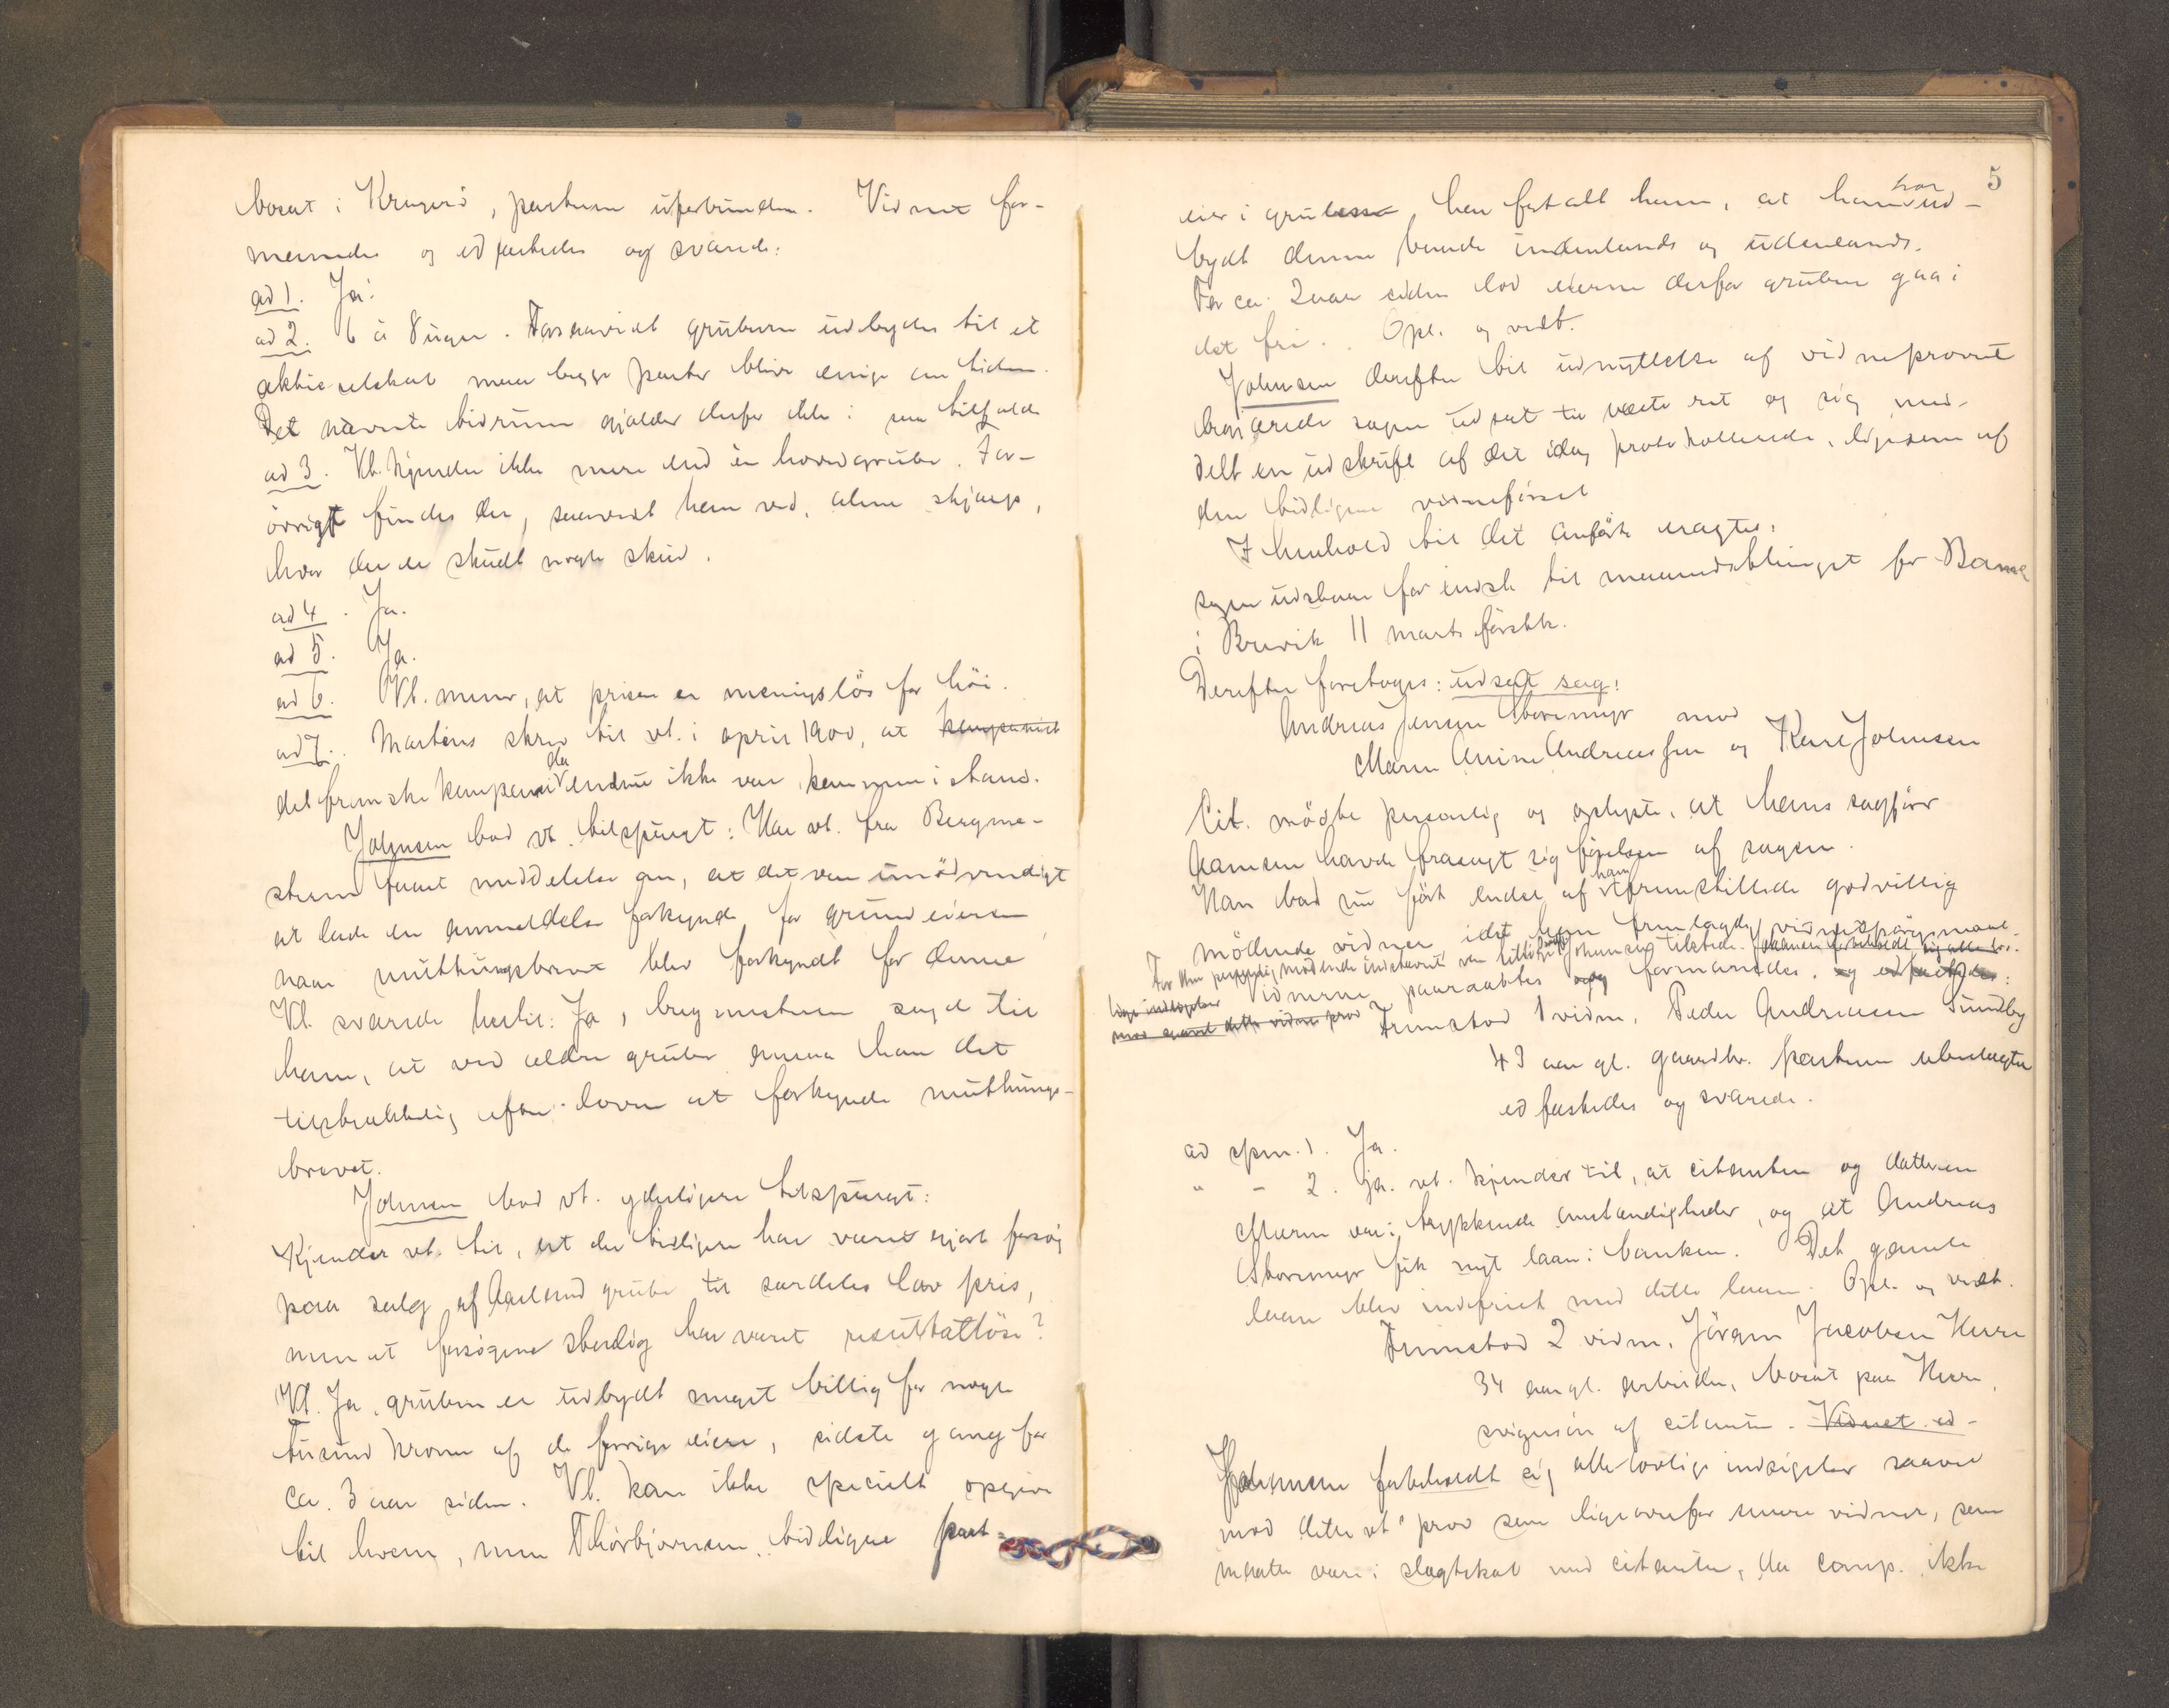 bosat i Kragerö, parterne uforbunden. Vidnet for-
manedes og edfæstedes og svarede:
ad 1. Ja.
ad 2. 6 à 8 uger. Forsaavidt gruberne udbydes til et
aktieselskab maa begge parter blive enige om tiden.
Det nævnte tidsrum gjælder derfor ikke i saa tilfælde
ad 3. Vt. kjender ikke mere end én hovedgrube. For-
övrigt findes der, saavidt han ved, alene skjærp,
hvor der er skudt nogle skud.
ad 4. Ja.
ad 5. Ja.
ad 6. Vt. mener, at prisen er meningslös for höi.
ad 7. Martens skrev til vt. i april 1900, at kompaniet
det franske kompani da endnu ikke var kommen i stand.
Johnsen bad vt. tilspurgt: Har vt. fra Bergme-
steren faaet meddelelse om, at det var unödvendigt
at lade en anmeldelse forkynde for grundeieren
naar muthingsbrevet blev forkyndt for denne
Vt. svarede hertil: Ja, bergmesteren sagde til
ham, at ved ældre gruber ansaa han det
tilstrækkelig efter loven at forkynde muthings-
brevet.
Johnsen bad vt. yderligere tilspurgt:
Kjender vt. til, at der tidligere har været gjort forsög
paa salg af grube til særdeles lav pris,
men at forsögene stadig har været resultatlöse?
Vt. Ja, gruben er udbydt meget billig for nogle
tusind kroner af de forrige eiere, sidste gang for
ca. 3 aar siden. Vt. kan ikke specielt opgive
til hvem, men Thorbjörnsen, tidligere part-
5
eier i gruben har fortalt ham, at han har ud-
bydt denne baade indenlands og udenlands.
For ca. 2 aar siden lod eierne derfor gruben gaa i
det fri. Opl. og vedt.
Johnsen derefter til udnyttelse af vidneprovet
begjærede sagen udsat til næste ret og sig med-
delt en udskrift af det idag protokollerede, ligesom af
den tidligere vidneförsel
I henhold til det anförte eragtes:
sagen udstaar for indst. til maanedsthinget for Bamle
i Brevik 11 marts förstk.
Derefter foretoges: udsat sag:
Andreas Jensen Storemyr mod
Maren Anine Andreasen og Karl Johnsen
Cit. mödte personlig og oplyste, at hans sagförer
Aamsen havde frasagt sig förelsen af sagen.
Han bad nu fört endel af ham fremstillede godvillig
mödende vidner, idet han fremlagde vidnespörgsmaal.
For den personlig mödende indstævnte var tillige Johnsen tilstede. Johnsen forbeholdt sig alle lov-
lige indsigelser Vidnerne paaraabtes og formanedes. og edfæstedes:
mod dette vidnes prov Fremstod 1 vidne, Peder Andreasen Sundby
43 aar gl. gaardbr. parterne ubeslægtet
edfæstedes og svarede.
ad spm. 1. Ja.
" - 2. Ja. vt. kjender til, at citanten og datteren
Maren var i trykkende omstændigheder, og at Andreas
Storemyr fik nyt laan i banken. Det gamle
laan blev indfriet med dette laan. Opl. og vedt.
Fremstod 2 vidne, Jörgen Jacobsen Herre
34 aar gl. arbeider, bosat paa Herre,
svigersön af citanten. Vidnet ed-
Johnsen forbeholdt sig alle lovlige indsigelser saavel
mod dette vt.s prov som ligeoverfor senere vidner, som
maatte være i slægtskab med citanten, da comp. ikke